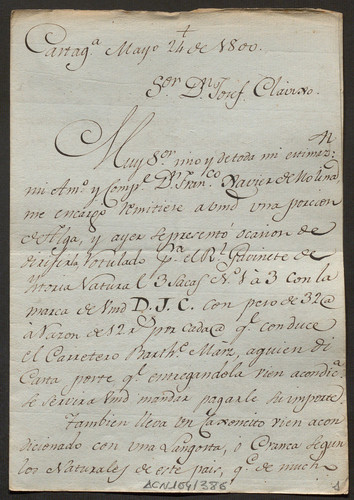 +
Cartag.ª Mayo 24 de 1800.
S.or D.n Josef Clavixo.
Muy S.or mio y de toda mi estimaz.n
mi Am.º y Comp.º D.n Fran.co Xavier de Molina,
me encargo remitiese a vmd una porcion
de Alga, y ayer se presentó ocacion de
rotulado p.ª el R.l Gavinete de
Istoria Natural 3 Sacas N.º 1 à 3 con la
marca de Vmd D. J. C. con peso de 32@
à razon de 12 r.s p.r cada @ q.e conduce
el Carretero Barth.e Marz, a quien di
Carta porte q.e entregandola vien acondic.ª
se servira Vmd mandar pagarle su importe
Tambien lleva un Caxoncito vien acon
dicionado con una Langosta, ò Cranca segun
los Naturales de este pais, q.e de much
ACN104/386